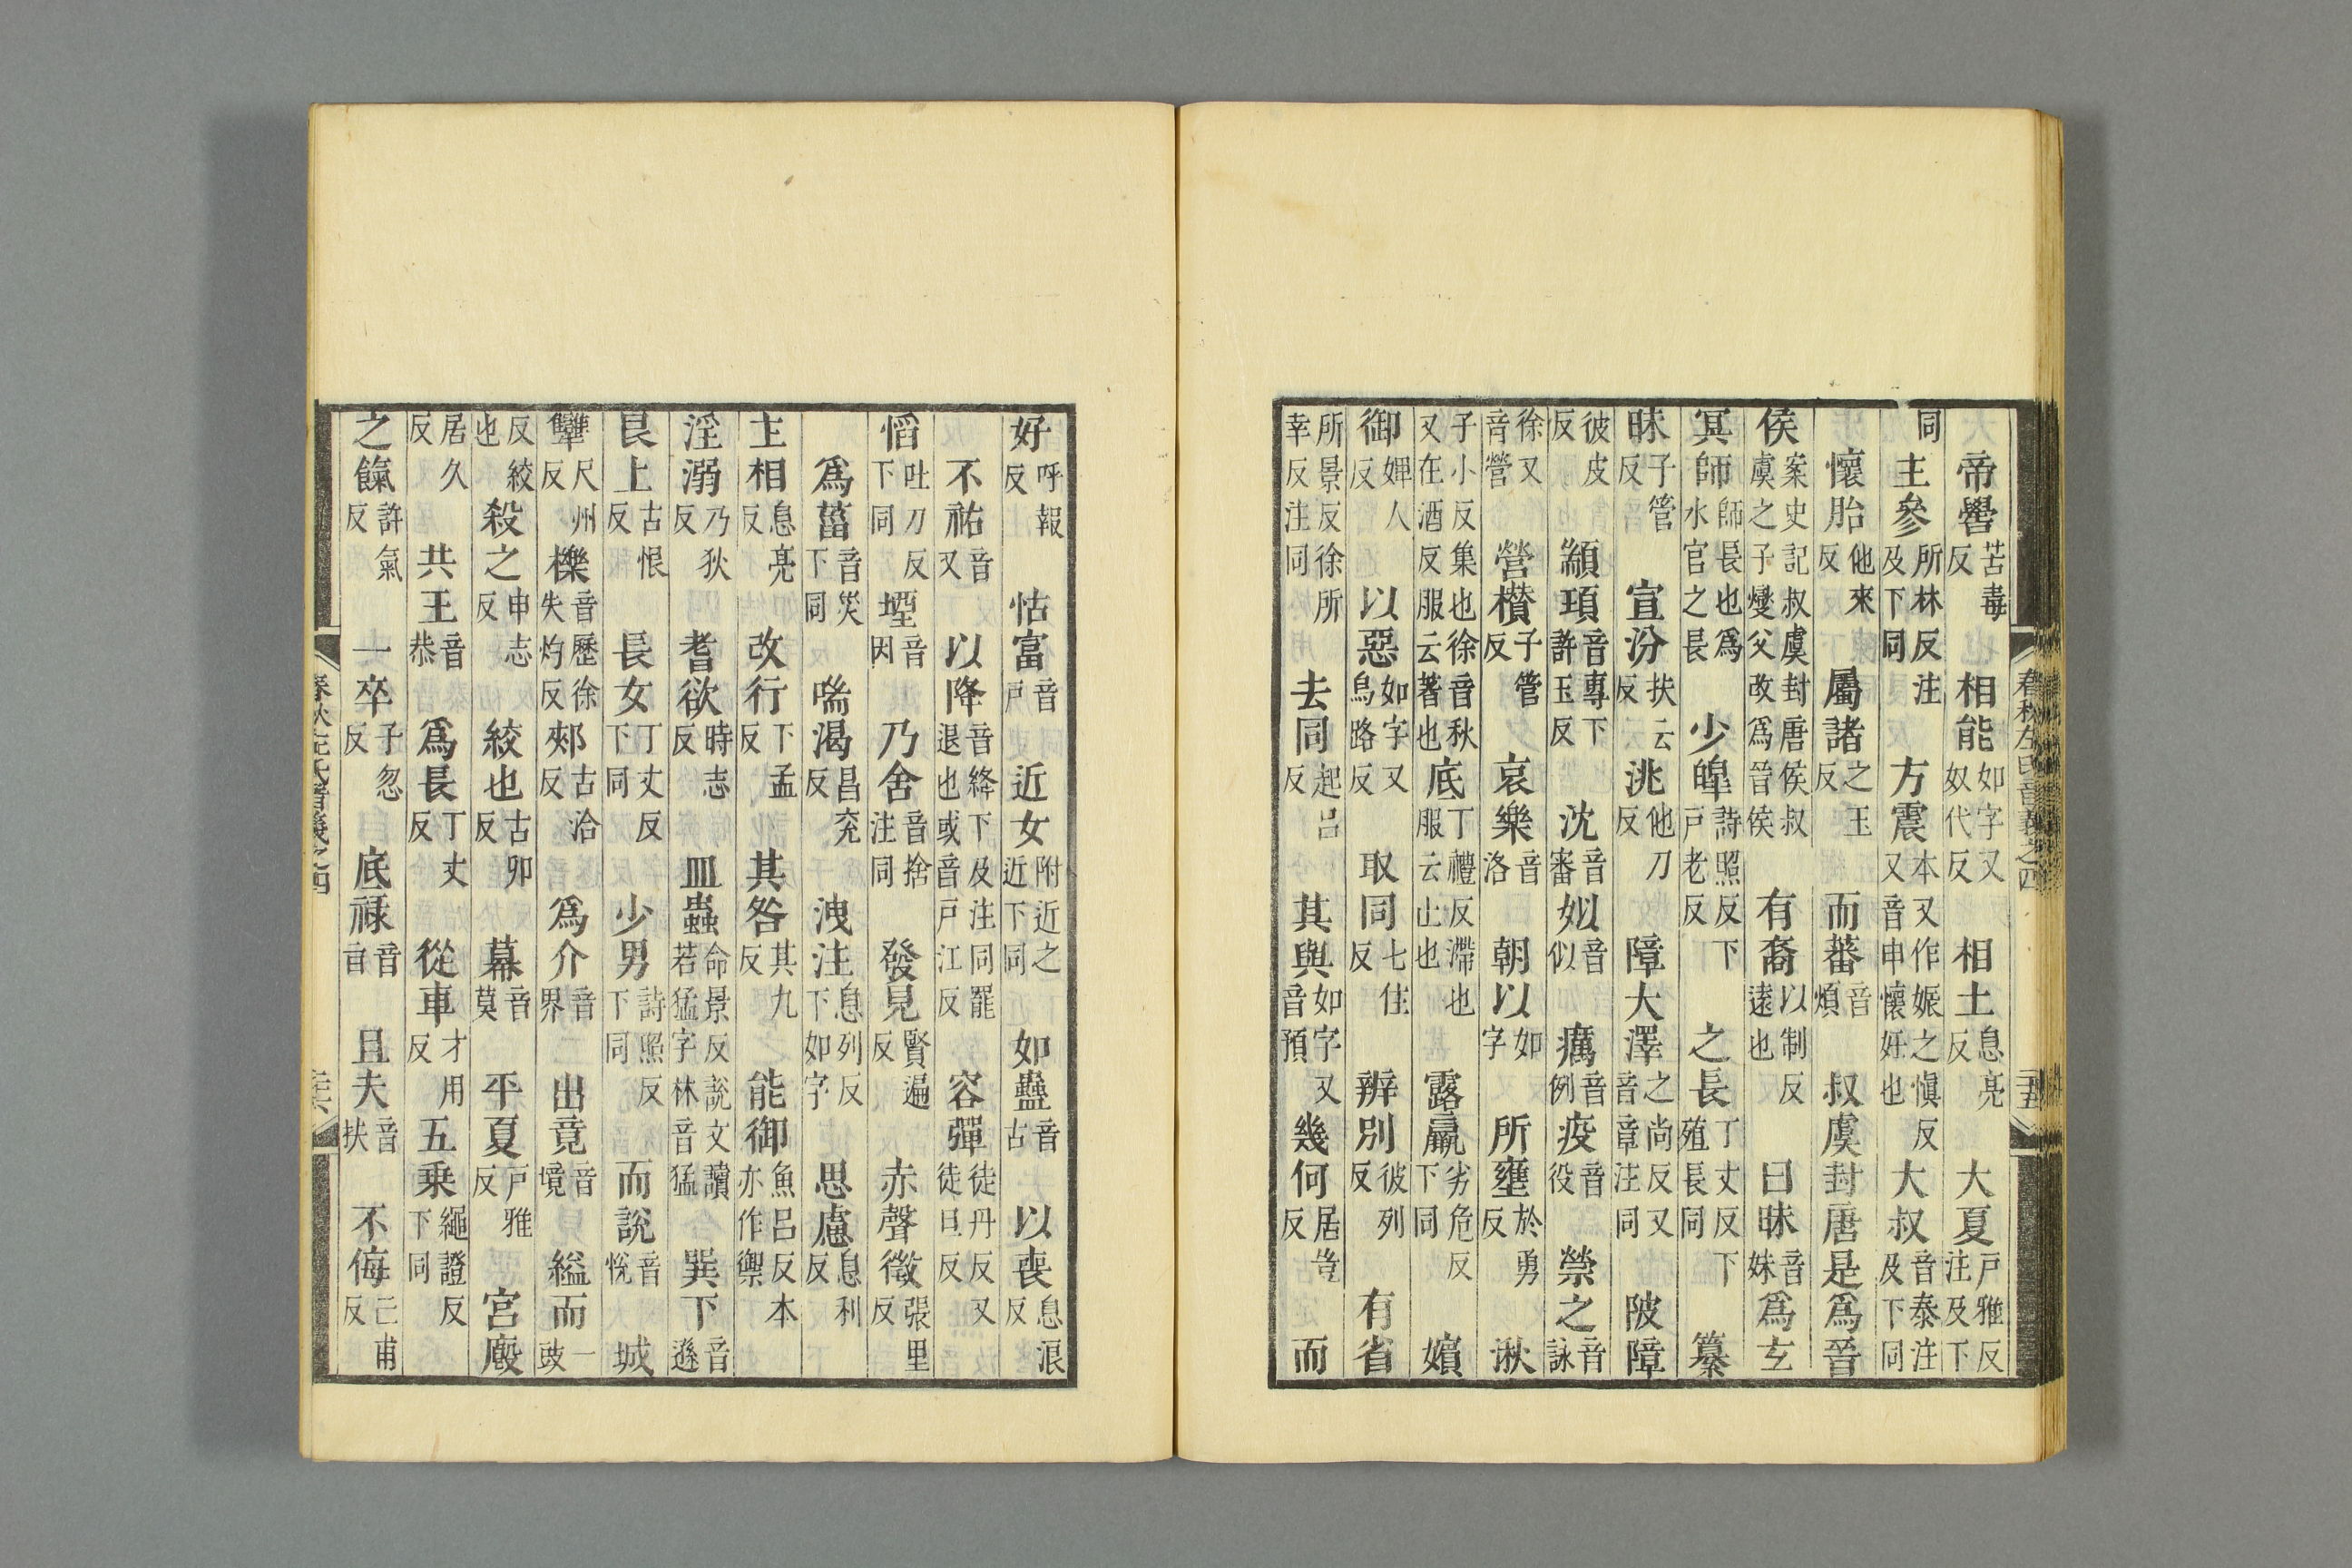 帝嚳苦毒反相能如字又奴代反相土息亮反大夏戶雅反注及下
同主參所林反注及下同方震本又作娠之愼反又音申懷妊也大叔音泰注及下同
懷胎他來反屬諸之玉反而蕃音煩叔虞封唐是爲晉
侯案史記叔虞封唐侯叔虞之子燮父改爲晉侯有裔以制反遠也曰昧音妹爲玄
冥師師長也爲水官之長少皥詩照反下戶老反之長丁丈反下殖長同纂
昧子管反宣汾扶云反洮他刀反障大澤之尚反又音章注同陂障
彼皮反顓頊音專下許玉反沈音審姒音似癘音例疫音役禜之音詠
徐又音營營欑子管反哀樂音洛朝以如字所壅於勇反湫
子小反集也徐音秋又在酒反服云著也底丁禮反滯也服云止也露羸劣危反下同嬪
御婢人反以惡如字又烏路反取同七住反辨別彼列反有省
所景反徐所幸反注同去同起呂反其與如字又音預幾何居豈反而
春秋左氏音義之四
好呼報反怙富音戶近女附近之近下同如蠱音古以喪息浪反
不祐音又以降音絳下及注同罷退也或音戶江反容彈徒丹反又徒旦反
慆吐刀反下同堙音因乃舍音捨注同發見賢遍反赤聲徵張里反
爲菑音災下同喘渴昌兖反洩注息列反下如字思慮息利反
主相息亮反改行下孟反其咎其九反能御魚呂反本亦作禦
淫溺乃狄反耆欲時志反皿蟲命景反說文讀若猛字林音猛巽下音遜
艮上古恨反長女丁丈反下同少男詩照反下同而說音悅城
犫尺州反櫟音歷徐失灼反郟古洽反爲介音界出竟音境縊而一豉
反絞也殺之申志反絞也古卯反幕音莫平夏戶雅反宮廄
居久反共王音恭爲長丁丈反從車才用反五乗繩證反下同
之餼許氣反一卒子忽反底祿音旨且夫音扶不侮亡甫反
春秋左氏音義之四